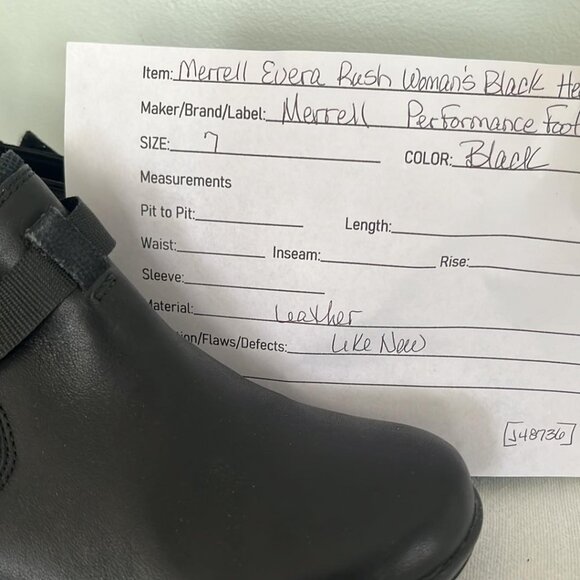 Item: Merrell Evera Rush Woman's Black He
Maker/Brand/Label: Merrell Performance Foot
SIZE: 7 COLOR: Black
Measurements
Pit to Pit: Length:
Waist: Inseam: Rise:
Sleeve:
Material: Leather
ion/Flaws/Defects: Like New
[J48736]